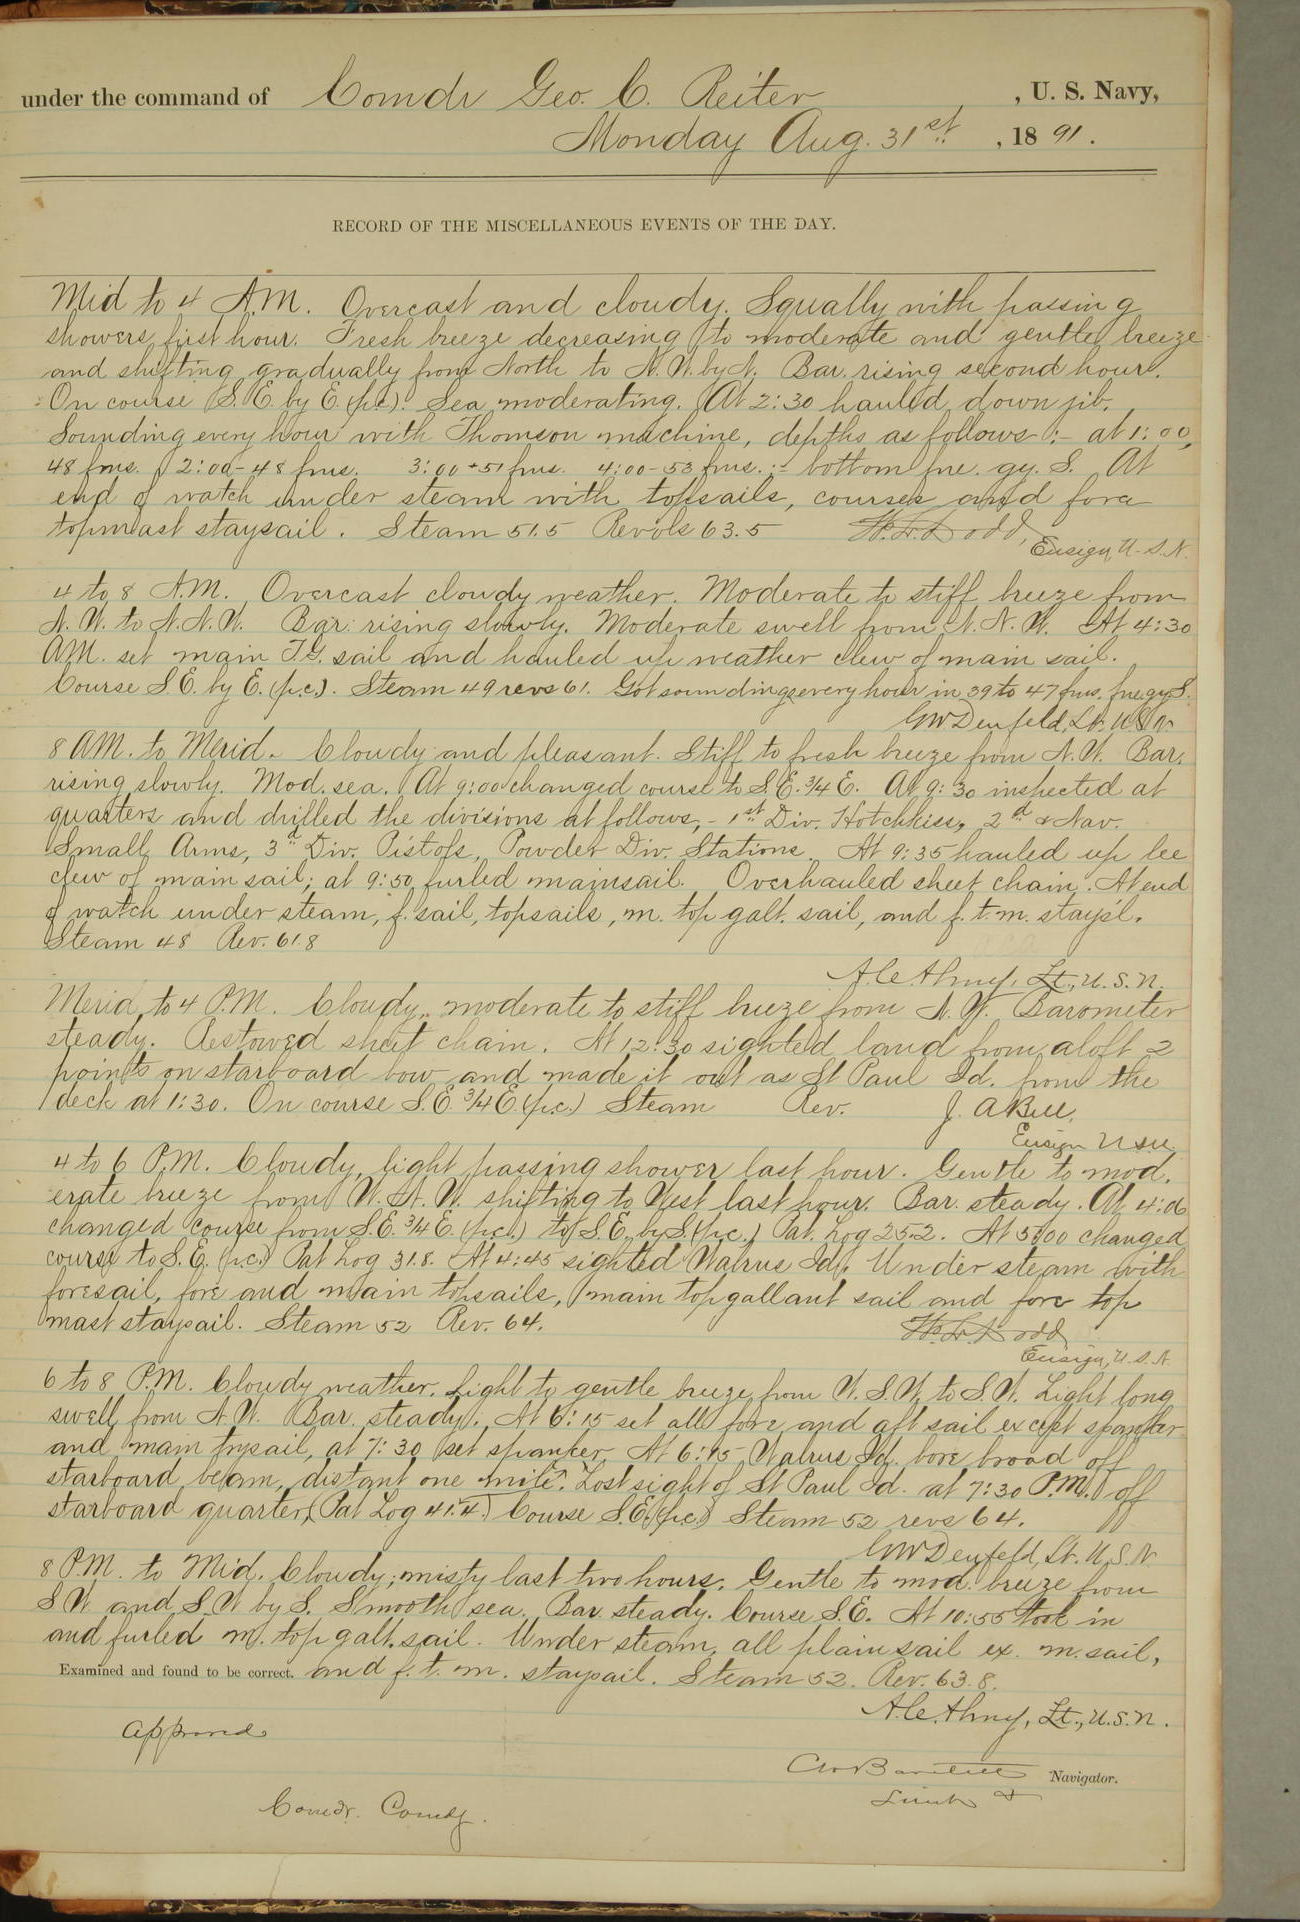 under the command of Comdr Geo. C. Reiter, U. S. Navy,
Monday Aug. 31st, 1891.
RECORD OF THE MISCELLANEOUS EVENTS OF THE DAY.
Mid to 4 A.M. Overcast and cloudy. Squally with passing
showers first hour. Fresh breeze decreasing to moderate and gentle breeze
and shifting gradually from North to N.W. by N. Bar. rising second hour.
On course S.E. by E. (p.c.). Sea moderating. At 2:30 hauled down jib.
Sounding every hour with Thomson machine, depths as follows:- at 1:00,
48 fms. 2:00-48 fms. 3:00-51 fms. 4:00-53 fms. :- bottom fne. gy. S. At
end of watch under steam with topsails, courses and fore
topmast staysail. Steam 51.5 Revols 63.5 Dodd,
Ensign, U.S.N.
4 to 8 A.M. Overcast cloudy weather. Moderate to stiff breeze from
N.W. to N.N.W. Bar. rising slowly. Moderate swell from N.N.W. At 4:30
AM. set main T.G. sail and hauled up weather clew of main sail.
Course S.E. by E. (p.c.). Steam 49 revs 61. Got soundings every hour in 39 to 47 fms. fne. gy S.
GW Denfeld, Lt. U.S.N.
8 AM. to Merid. Cloudy and pleasant. Stiff to fresh breeze from N.W. Bar.
rising slowly. Mod. sea. At 9:00 changed course to S.E. 3/4 E. At 9:30 inspected at
quarters and drilled the divisions as follows,- 1st Div. Hotchkiss, 2d & Nav.
Small Arms, 3d Div. Pistols, Powder Div. Stations. At 9:35 hauled up lee
clew of main sail; at 9:50 furled mainsail. Overhauled sheet chain. At end
of watch under steam, f. sail, topsails, m. top galt. sail, and f. t. m. stays'l.
Steam 48 Rev. 61.8
A.C. Almy, Lt., U.S.N.
Merid to 4 P.M. Cloudy, moderate to stiff breeze from N.W. Barometer
steady. Restowed sheet chain. At 12:30 sighted land from aloft 2
points on starboard bow and made it out as St Paul Id. from the
deck at 1:30. On course S.E. 3/4 E. (p.c.) Steam Rev. J. A Bell,
Ensign USN.
4 to 6 P.M. Cloudy, light passing shower last hour. Gentle to mod-
erate breeze from W.N.W. shifting to West last hour. Bar. steady. At
changed course from S.E. 3/4 E. (p.c.) to S.E. by S. (p.c.) Pat. Log 25.2. At 5:00 changed
course to S.E. (p.c.) Pat Log 31.8. At 4:45 sighted Walrus Id. Under steam with
foresail, fore and main topsails, main topgallant sail and fore top
mast staysail. Steam 52 Rev. 64.
Dodd
Ensign, U.S.N.
6 to 8 P.M. Cloudy weather. Light to gentle breeze from W.S.W. to S.W. Light long
swell from N.W. Bar. steady. At 6:15 set all fore and aft sail except spanker
and main trysail, at 7:30 set spanker. At 6:15 Walrus Id. bore broad off
starboard beam, distant one mile. Lost sight of St Paul Id. at 7:30 P.M. off
starboard quarter, (Pat Log 41.4.) Course S.E. (p.c.) Steam 52 revs 64.
GW Denfeld, Lt. U.S.N
8 P.M. to Mid. Cloudy; misty last two hours. Gentle to mod. breeze from
SW and S.W by S. Smooth sea. Bar steady. Course S.E. At 10:55 took in
and furled m. top galt. sail. Under steam, all plain sail ex. m. sail,
Examined and found to be correct. and f. t. m. staysail. Steam 52. Rev. 63.8.
A.C. Almy, Lt., U.S.N.
Approved
Navigator.
Comdr. Comdg.